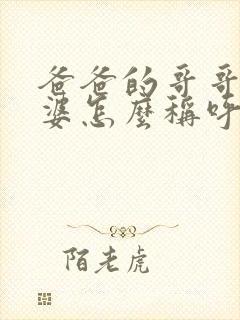 爸爸的哥哥
婆怎麼稱呼
陌老虎